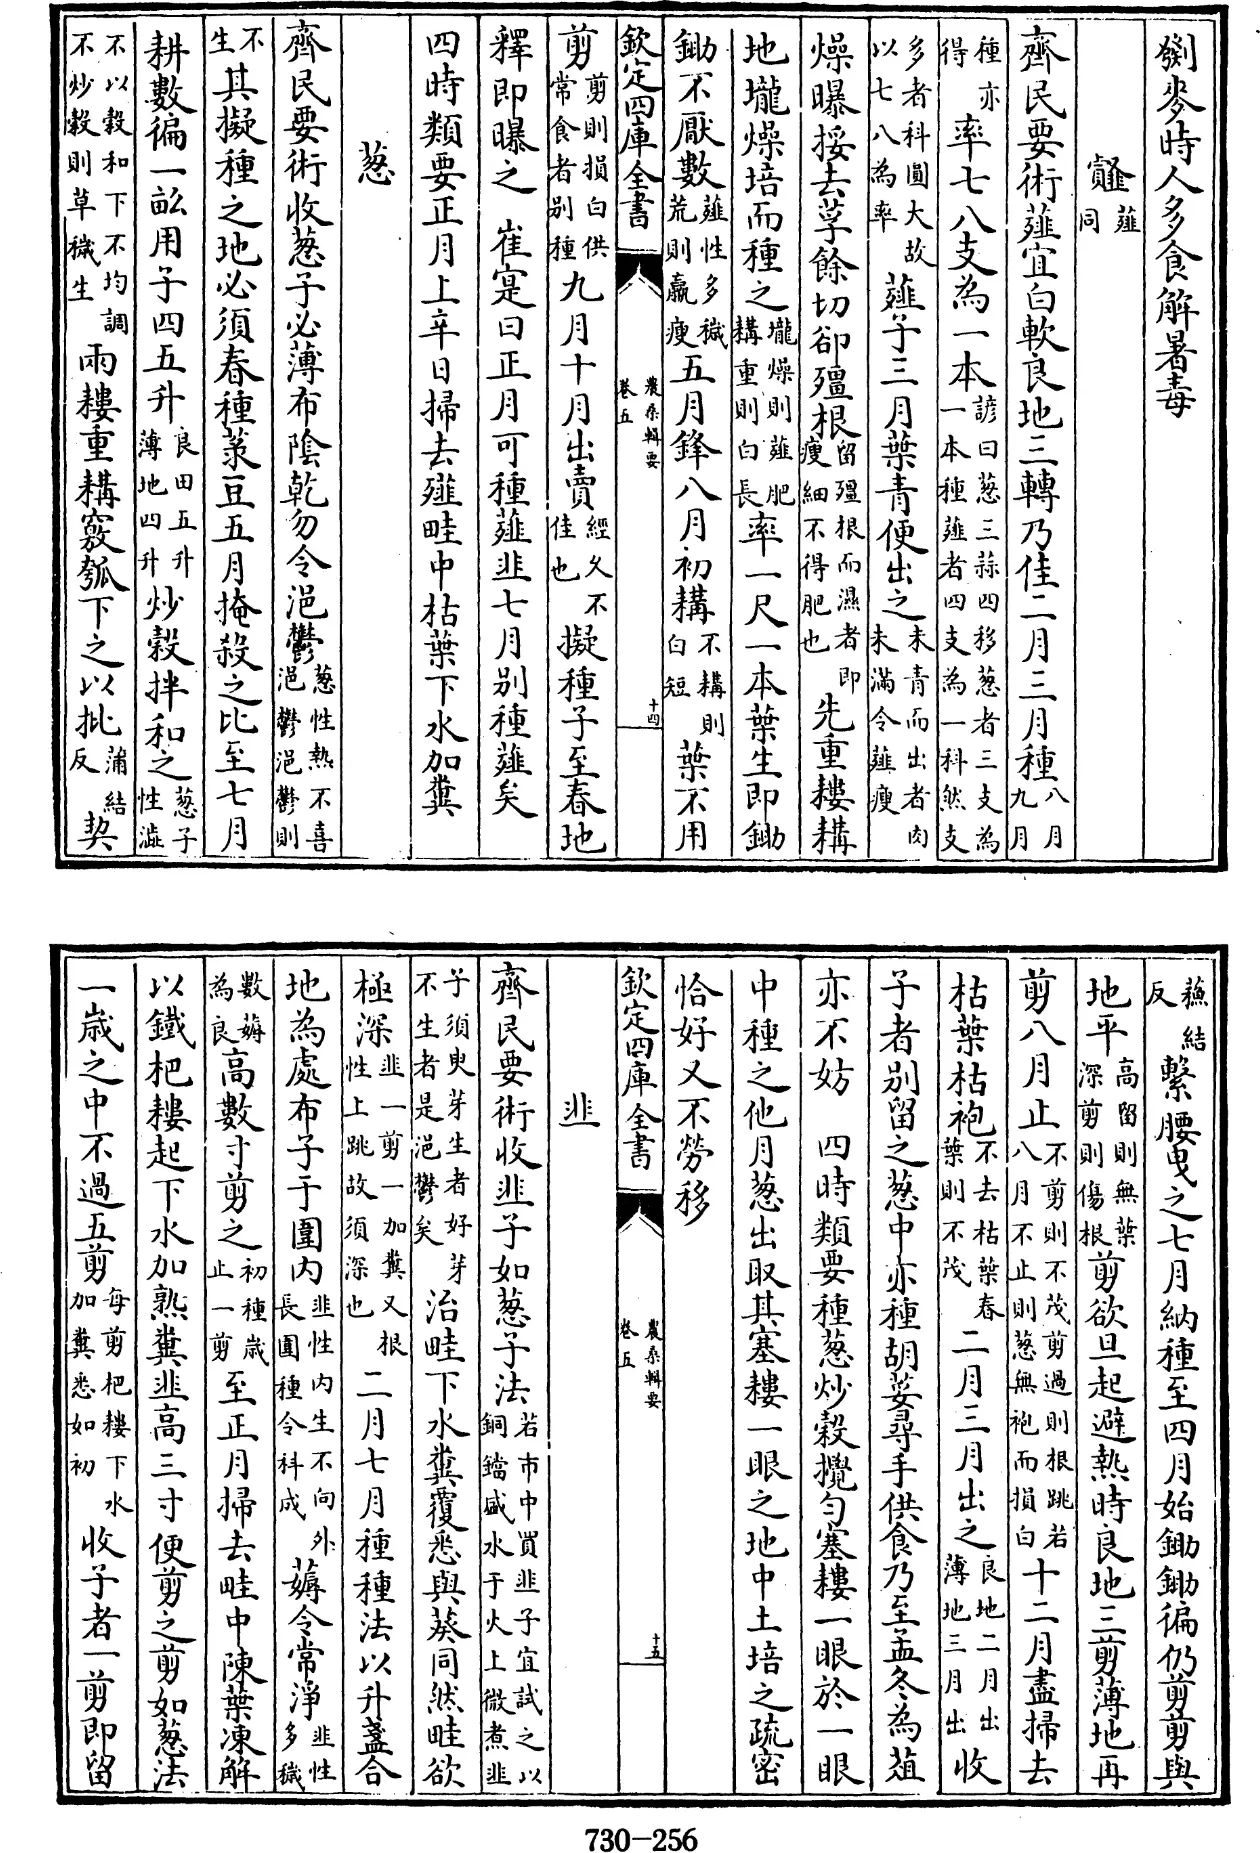 麥時人多食解暑毒
䪥薤同
齊民要術薤宜白軟良地三轉乃佳二月三月種八月九月
種亦得率七八支為一本諺曰葱三蒜四移葱者三支為一本種薤者四支為一科然支
多者科圓大故以七八為率薤子三月葉青便出之未青而出者肉未滿令薤瘦
燥曝挼去莩餘切卻殭根留殭根而濕者即瘦細不得肥也先重耬耩
地壠燥培而種之壠燥則薤肥耩重則白長率一尺一本葉生即鋤
鋤不厭數薤性多穢荒則羸瘦五月鋒八月初耩不耩則白短葉不用
欽定四庫全書 農桑輯要 卷五 十四
剪剪則損白供常食者别種九月十月出賣經久不佳也擬種子至春地
釋即曝之 崔寔曰正月可種薤韭七月别種薤矣
四時類要正月上辛日掃去薤畦中枯葉下水加糞
葱
齊民要術收葱子必薄布陰乾勿令浥鬱葱性熱不喜浥鬱浥鬱則
不生其擬種之地必須春種菉豆五月掩殺之比至七月
耕數徧一畝用子四五升良田五升薄地四升炒穀拌和之葱子性澁
不以穀和下不均調不炒穀則草穢生兩耬重耩竅瓠下之以批蒲結反契
蘓結反繫腰曳之七月納種至四月始鋤鋤徧仍剪剪與
地平高留則無葉深剪則傷根剪欲旦起避熱時良地三剪薄地再
剪八月止不剪則不茂剪過則根跳若八月不止則葱無袍而損白十二月盡掃去
枯葉枯袍不去枯葉春葉則不茂二月三月出之良地二月出薄地三月出收
子者别留之葱中亦種胡荽尋手供食乃至孟冬為葅
亦不妨 四時類要種葱炒穀攪勻塞耬一眼於一眼
中種之他月葱出取其塞耬一眼之地中土培之疏密
恰好又不勞移
欽定四庫全書 農桑輯要 卷五 十五
韭
齊民要術收韭子如葱子法若市中買韭子宜試之以銅鐺盛水于火上微煮韭
子須臾芽生者好芽不生者是浥鬱矣治畦下水糞覆悉與葵同然畦欲
極深韭一剪一加糞又根性上跳故須深也二月七月種種法以升盞合
地為處布子于圍內韭性內生不向外長圍種令科成薅令常淨韭性多穢
數薅為良高數寸剪之初種歲止一剪至正月掃去畦中陳葉凍解
以鐵杷耬起下水加熟糞韭高三寸便剪之剪如葱法
一歲之中不過五剪每剪杷耬下水加糞悉如初收子者一剪即留
730-256